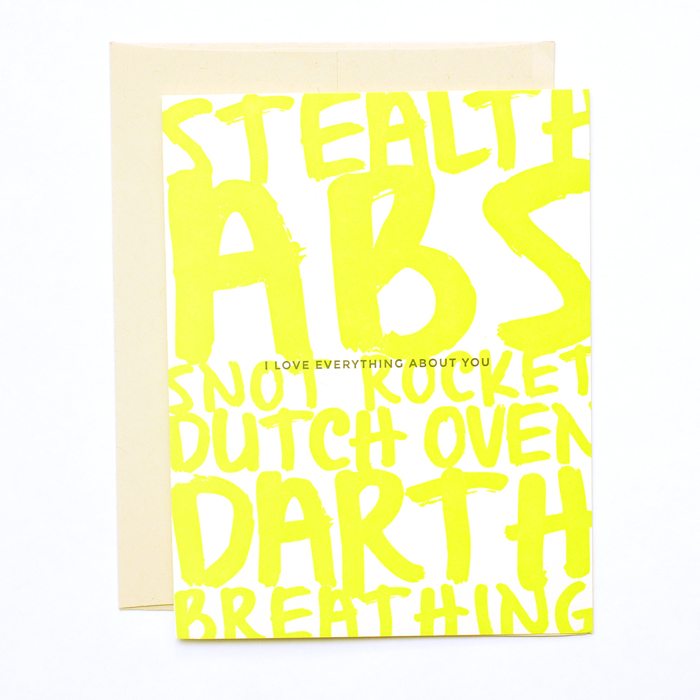 STEALTH
ABS
I LOVE EVERYTHING ABOUT YOU
SNOT ROCKET
DUTCH OVEN
DARTH
BREATHING